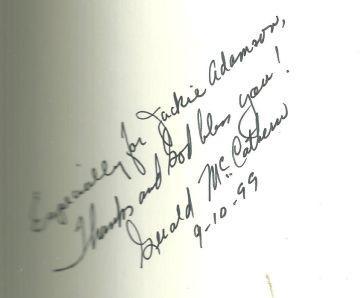 Especially for Jackie Adamson,
Thanks and God bless you!
Gerald McCathern
9-10-99